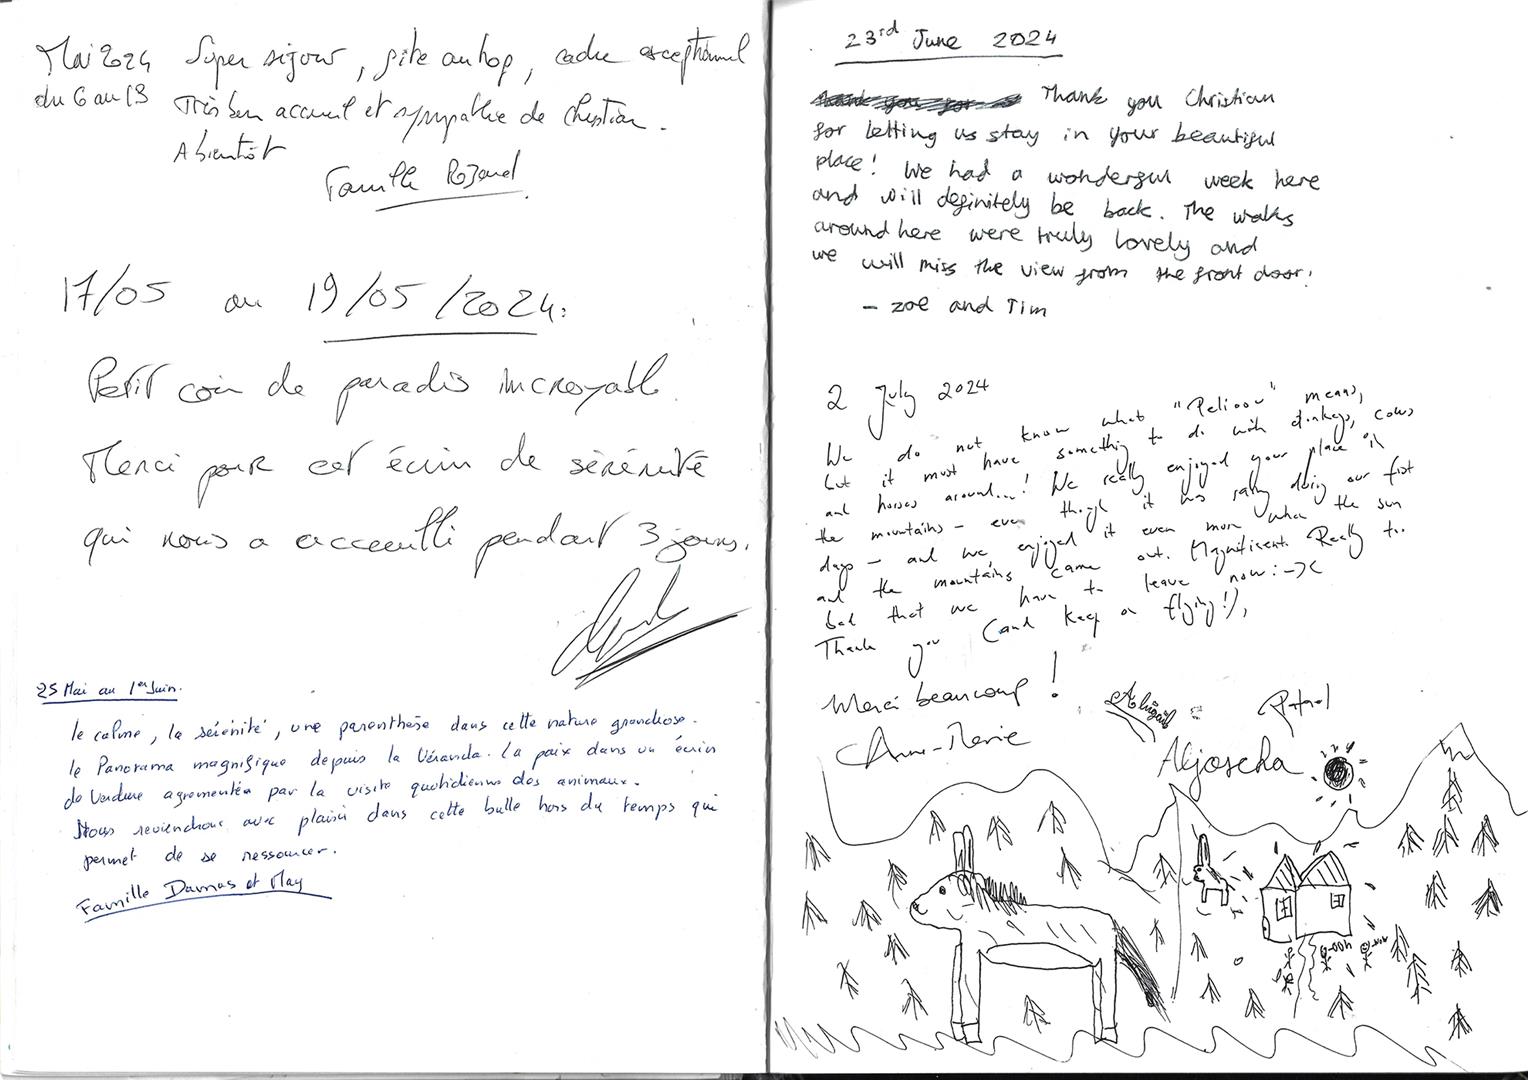 Mai 2024 Super séjour, gîte au top, cadre exceptionnel
du 6 au 13 Très bon accueil et sympathie de Christian.
A bientôt
Famille
17/05 au 19/05/2024:
Petit coin de paradis incroyable.
Merci pour cet écrin de sérénité
qui nous a accueilli pendant 3 jours.
25 Mai au 1er Juin.
le calme, la sérénité, une parenthèse dans cette nature grandiose.
le Panorama magnifique depuis la Véranda. La paix dans un écrin
de Verdure agrémentée par la visite quotidienne des animaux.
Nous reviendrons avec plaisir dans cette bulle hors du temps qui
permet de se ressourcer.
Famille Damas et May
23rd June 2024
Thank you Christian
for letting us stay in your beautiful
place! We had a wonderful week here
and will definitely be back. The walks
around here were truly lovely and
we will miss the view from the front door!
- Zoe and Tim
2 July 2024
We do not know what "Pelioou" means,
but it must have something to do with donkeys, cows
and horses around...! We really enjoyed your place in
the mountains - even though it was rainy during our first
days - and we enjoyed it even more when the sun
and the mountains came out. Magnificent. Really too
bad that we have to leave now :-)(
Thank you (and keep on flying!),
Merci beaucoup!
Anne-Marie
Abigail
Aljoscha